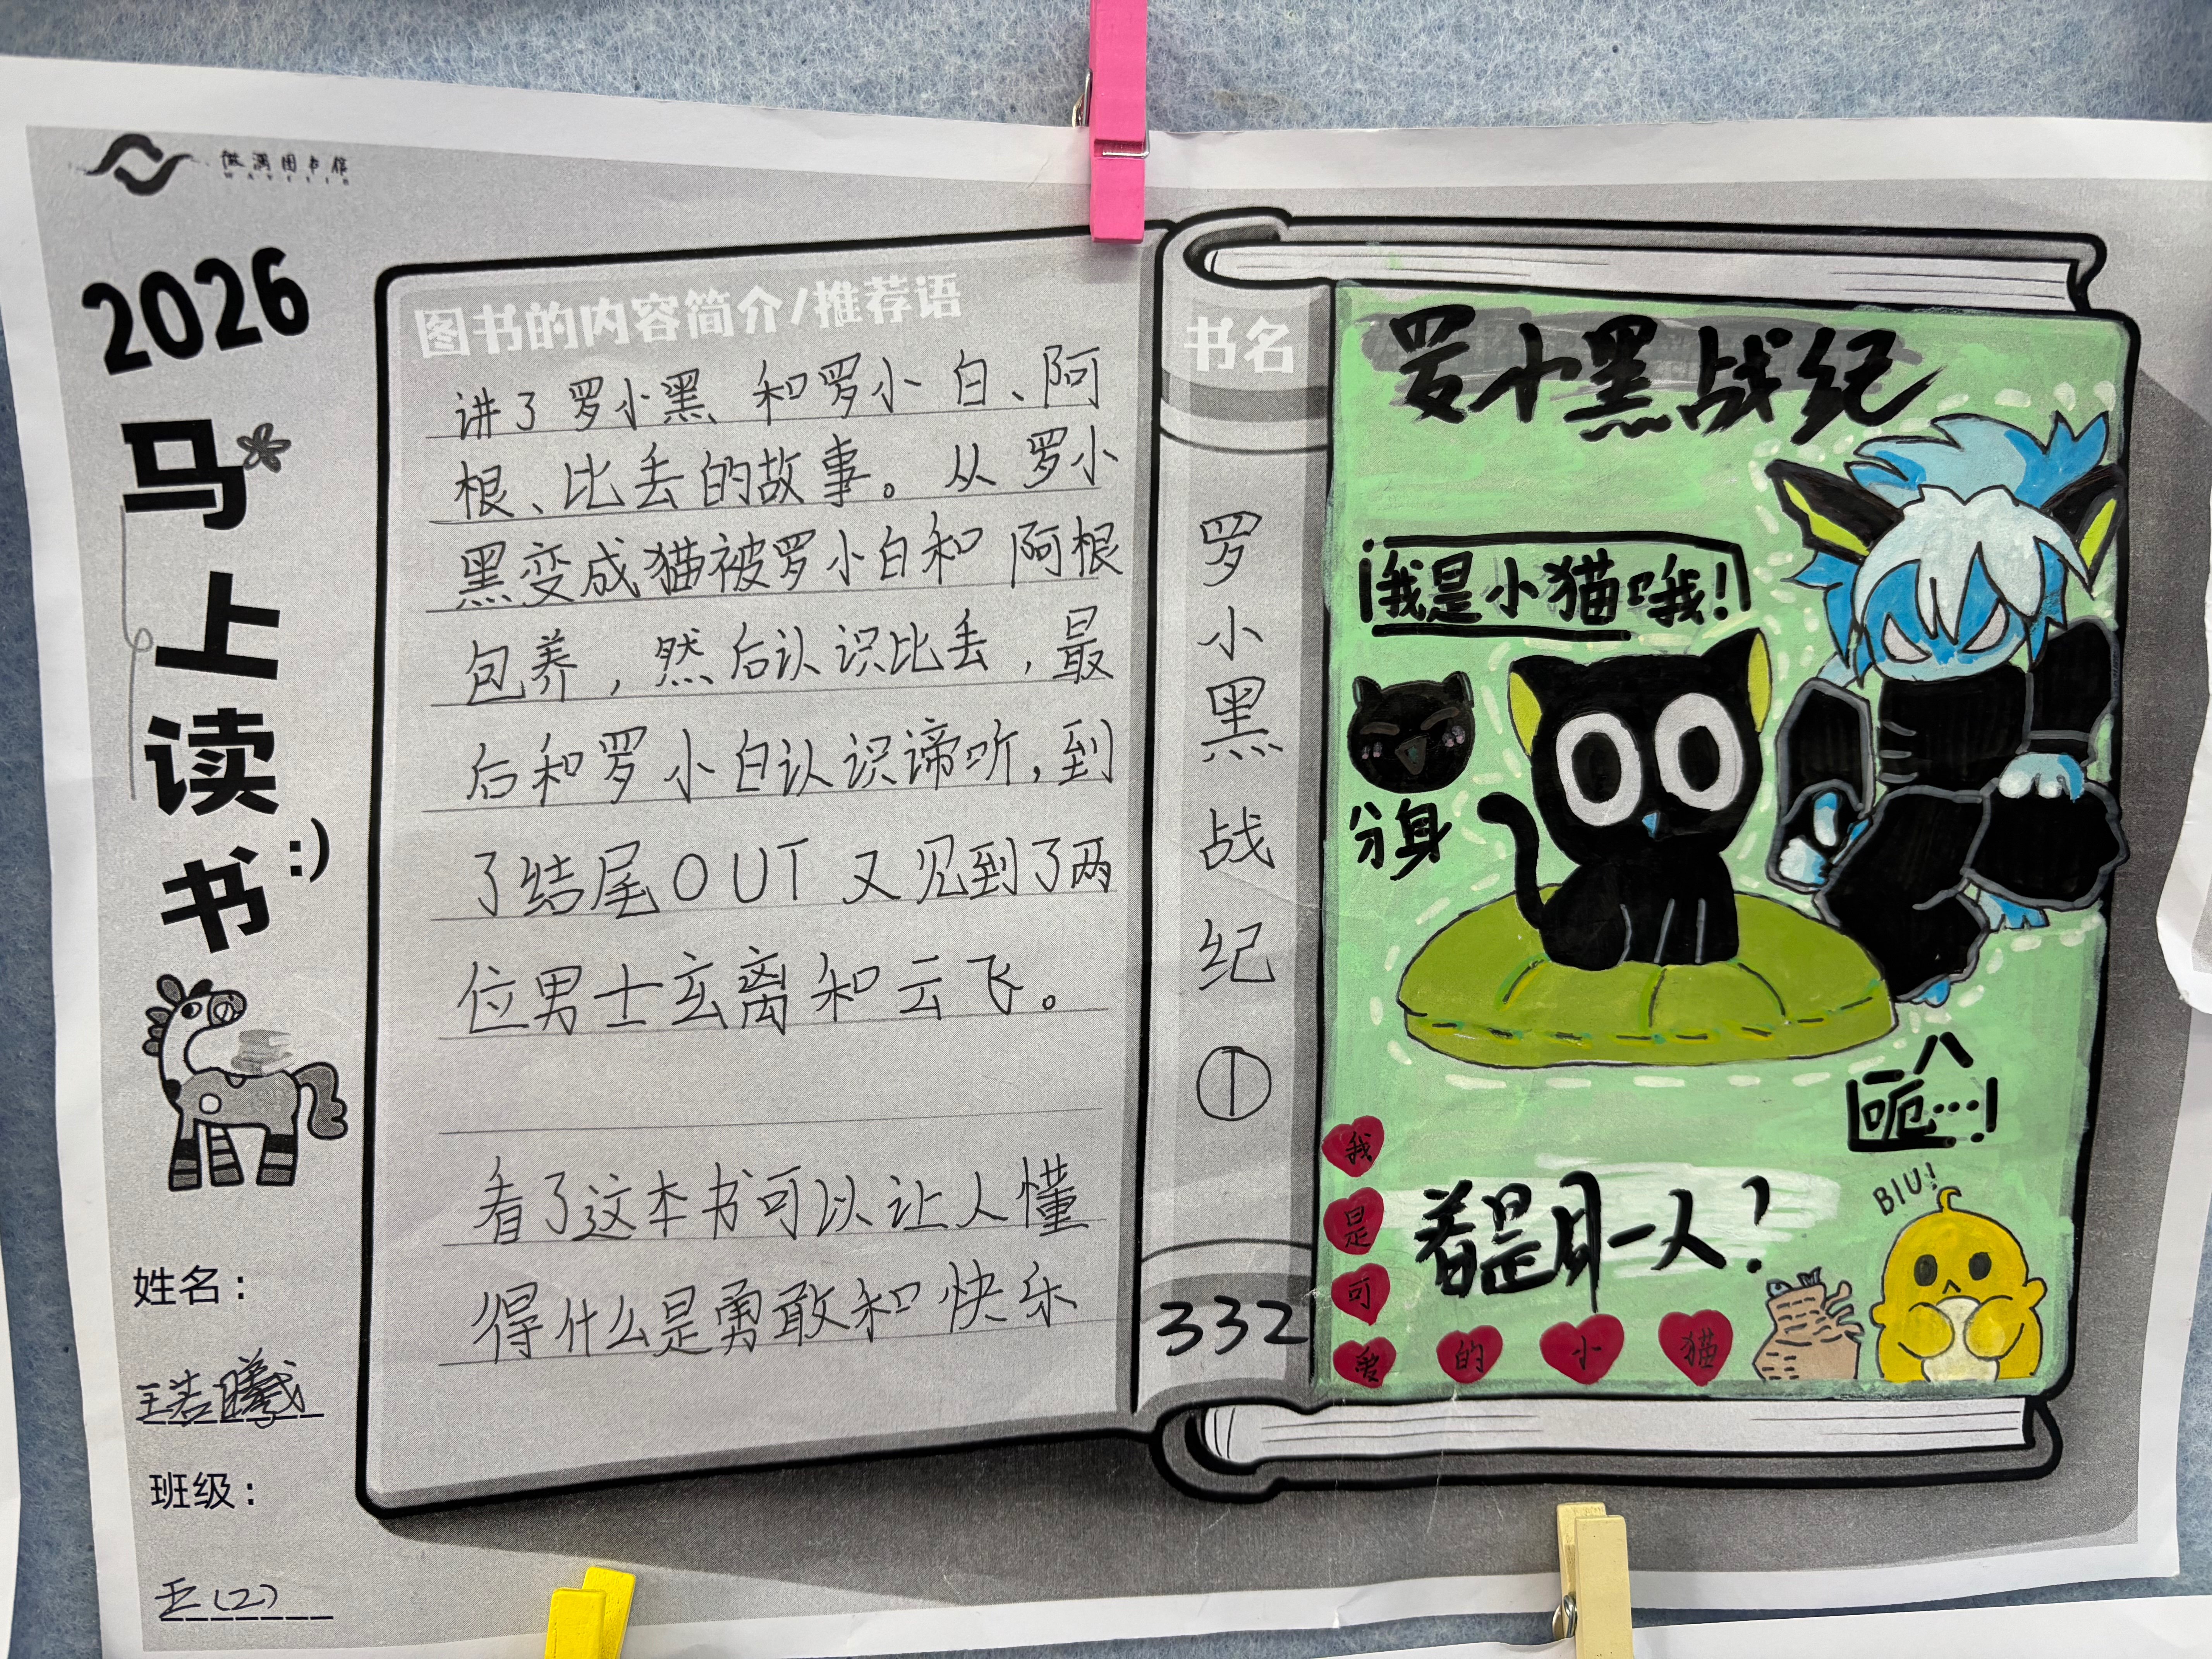 微澜图书馆
2026
马
上
读
书:)
姓名：
班级：
五(2)
图书的内容简介/推荐语
讲了罗小黑和罗小白、阿
根、比丢的故事。从罗小
黑变成猫被罗小白和阿根
包养，然后认识比丢，最
后和罗小白认识谛听，到
了结尾OUT又见到了两
位男士玄离和云飞。
看了这本书可以让人懂
得什么是勇敢和快乐
书名
罗小黑战纪①
332
罗小黑战纪
我是小猫哦!
分身
呃…!
着是同一人?
BIU!
我是可爱的小猫